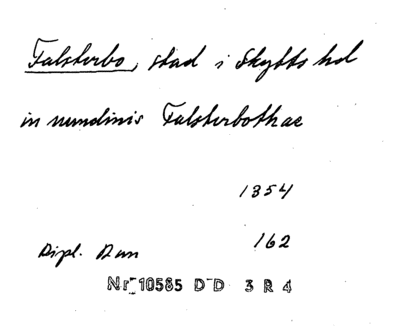 Falsterbo, stad i Skytts hd
in nundinis Falsterbothae
1354
Dipl. Dan 162
Nr 10585 D D 3 R 4